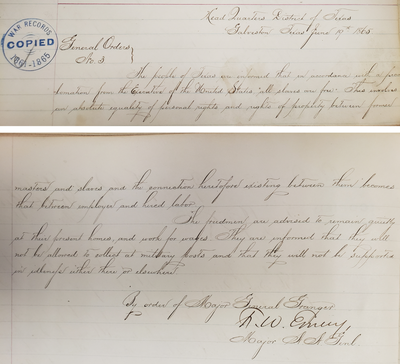 Head Quarters District of Texas
Galveston Texas June 19th 1865
WAR RECORDS
COPIED
1861-1865
General Orders
No. 3
The people of Texas are informed that in accordance with a Proc
lamation from the Executive of the United States, "all slaves are free." This involves
an absolute equality of personal rights and rights of property between former
masters and slaves and the connection heretofore existing between them becomes
that between employer and hired labor.
The freedmen are advised to remain quietly
at their present homes, and work for wages. They are informed that they will
not be allowed to collect at military posts and that they will not be supported
in idleness either there or elsewhere.
By order of Major General Granger
F. W. Emery,
Major & A A Genl.